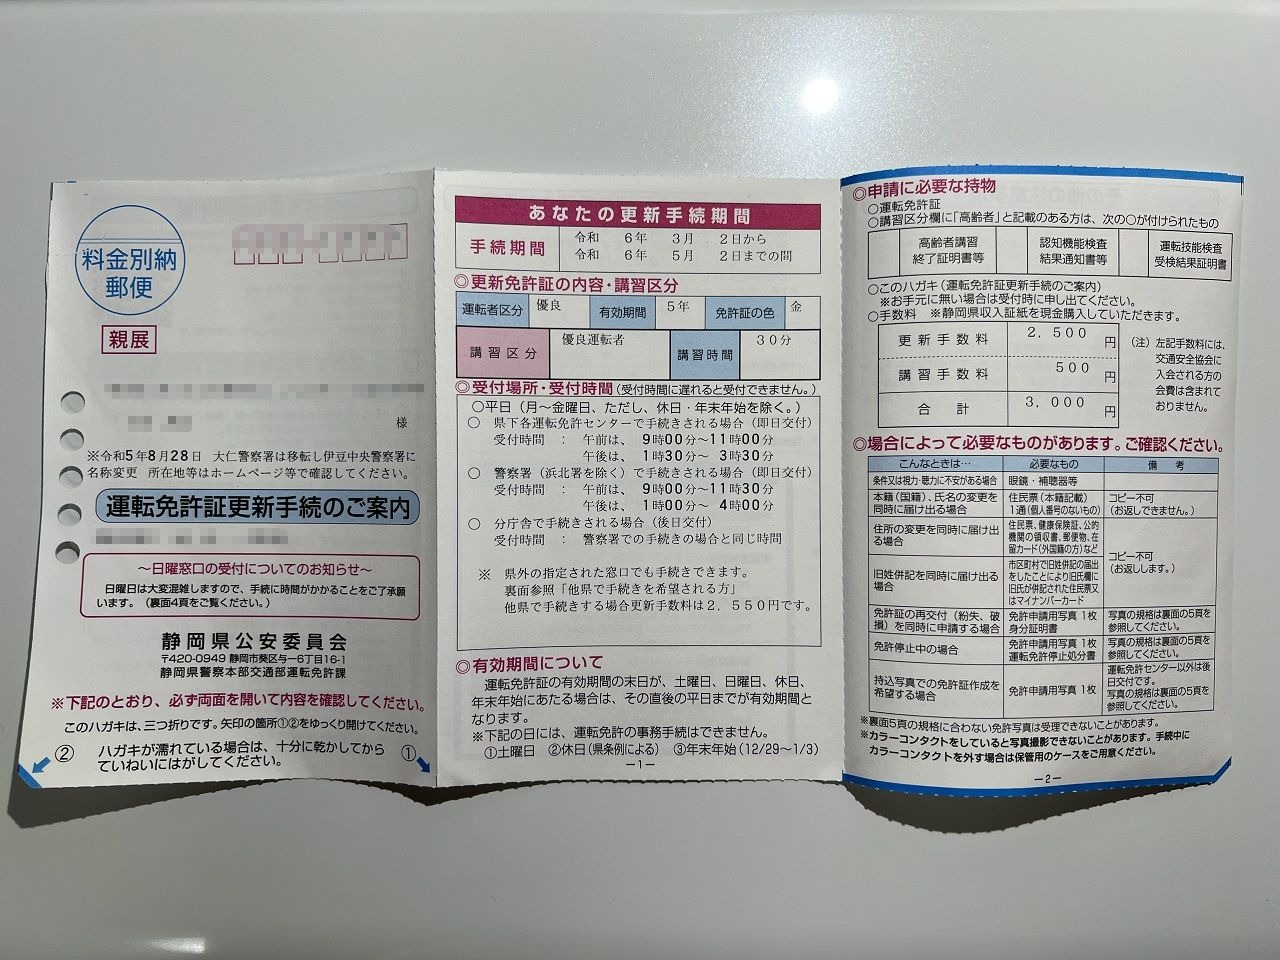 料金別納
郵便
親展
様
※令和5年8月28日 大仁警察署は移転し伊豆中央警察署に
名称変更 所在地等はホームページ等で確認してください。
運転免許証更新手続のご案内
～日曜窓口の受付についてのお知らせ～
日曜日は大変混雑しますので、手続に時間がかかることをご了承願
います。（裏面4頁をご覧ください。）
静岡県公安委員会
〒420-0949 静岡市葵区与一6丁目16-1
静岡県警察本部交通部運転免許課
※下記のとおり、必ず両面を開いて内容を確認してください。
このハガキは、三つ折りです。矢印の箇所①②をゆっくり開けてください。
② ハガキが濡れている場合は、十分に乾かしてから ①
ていねいにはがしてください。
あなたの更新手続期間
手続期間 令和 6年 3月 2日から
令和 6年 5月 2日までの間
◎更新免許証の内容・講習区分
運転者区分 優良 有効期間 5年 免許証の色 金
講習区分 優良運転者 講習時間 30分
◎受付場所・受付時間（受付時間に遅れると受付できません。）
○平日（月～金曜日、ただし、休日・年末年始を除く。）
○ 県下各運転免許センターで手続きされる場合（即日交付）
受付時間 ： 午前は、 9時00分～11時00分
午後は、 1時30分～ 3時30分
○ 警察署（浜北署を除く）で手続きされる場合（即日交付）
受付時間 ： 午前は、 9時00分～11時30分
午後は、 1時00分～ 4時00分
○ 分庁舎で手続きされる場合（後日交付）
受付時間 ： 警察署での手続きの場合と同じ時間
※ 県外の指定された窓口でも手続きできます。
裏面参照「他県で手続きを希望される方」
他県で手続きする場合更新手数料は2,550円です。
◎有効期間について
運転免許証の有効期間の末日が、土曜日、日曜日、休日、
年末年始にあたる場合は、その直後の平日までが有効期間と
なります。
※下記の日には、運転免許の事務手続はできません。
①土曜日 ②休日（県条例による） ③年末年始（12/29～1/3）
－1－
◎申請に必要な持物
○運転免許証
○講習区分欄に「高齢者」と記載のある方は、次の○が付けられたもの
高齢者講習 認知機能検査 運転技能検査
終了証明書等 結果通知書等 受検結果証明書
○このハガキ（運転免許証更新手続のご案内）
※お手元に無い場合は受付時に申し出てください。
○手数料 ※静岡県収入証紙を現金購入していただきます。
更新手数料 2,500円
講習手数料 500円
合計 3,000円
（注） 左記手数料には、
交通安全協会に
入会される方の
会費は含まれて
おりません。
◎場合によって必要なものがあります。ご確認ください。
こんなときは… 必要なもの 備考
条件又は視力・聴力に不安がある場合 眼鏡・補聴器等
本籍（国籍）、氏名の変更を 住民票（本籍記載） コピー不可
同時に届け出る場合 1通（個人番号のないもの） （お返しできません。）
住所の変更を同時に届け出 住民票、健康保険証、公的
る場合 機関の領収書、郵便物、在
留カード（外国籍の方）など
コピー不可
（お返しします。）
旧姓併記を同時に届け出る 市区町村で旧姓併記の届出
場合 をしたことにより旧氏欄に
旧氏が併記された住民票又
はマイナンバーカード
免許証の再交付（紛失、破 免許申請用写真1枚 写真の規格は裏面の5頁を
損）を同時に申請する場合 身分証明書 参照してください。
免許停止中の場合 免許申請用写真1枚 写真の規格は裏面の5頁を
運転免許停止処分書 参照してください。
持込写真での免許証作成を 免許申請用写真1枚 運転免許センター以外は後
希望する場合 日交付です。
写真の規格は裏面の5頁を
参照してください。
※裏面5頁の規格に合わない免許写真は受理できないことがあります。
※カラーコンタクトをしていると写真撮影できないことがあります。手続中に
カラーコンタクトを外す場合は保管用のケースをご用意ください。
－2－